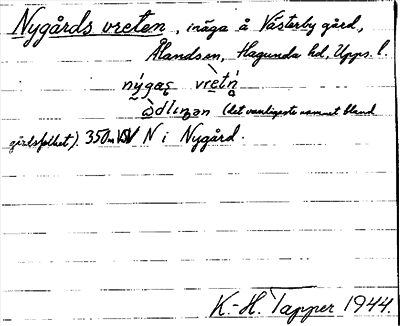 Nygårds vreten, inäga å Västerby gård,
Ålandsen, Hagunda hd, Upps. l.
nýgaş vrètń̥
~ òdlıŋən (det vanligaste namnet bland
gårdsfolket). 350m N i Nygård.
K.-H. Tapper 1944.